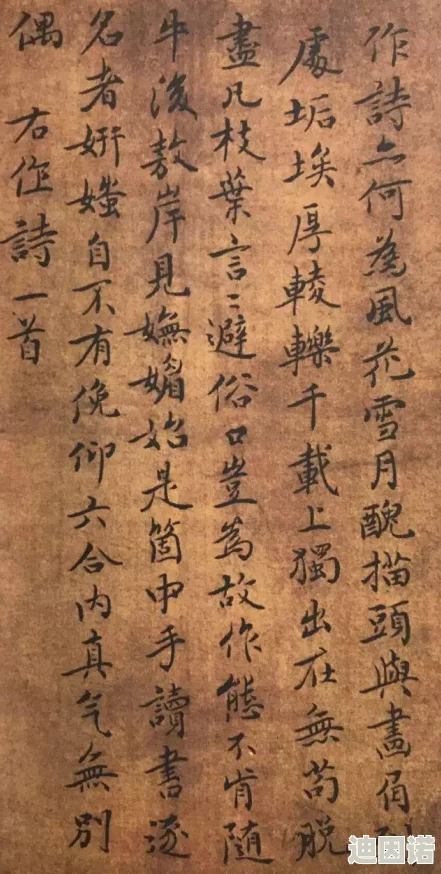 作詩亦何為風花雪月醜描頭與畫角到
處垢埃厚輘轢千載上獨出在無苟脫
盡凡枝葉言〻避俗口豈為故作態不肯隨
牛後敖岸見嫵媚始是箇中手讀書逐
名者妍媸自不有俛仰六合内真气無別
偶 右作詩一首
迪因诺